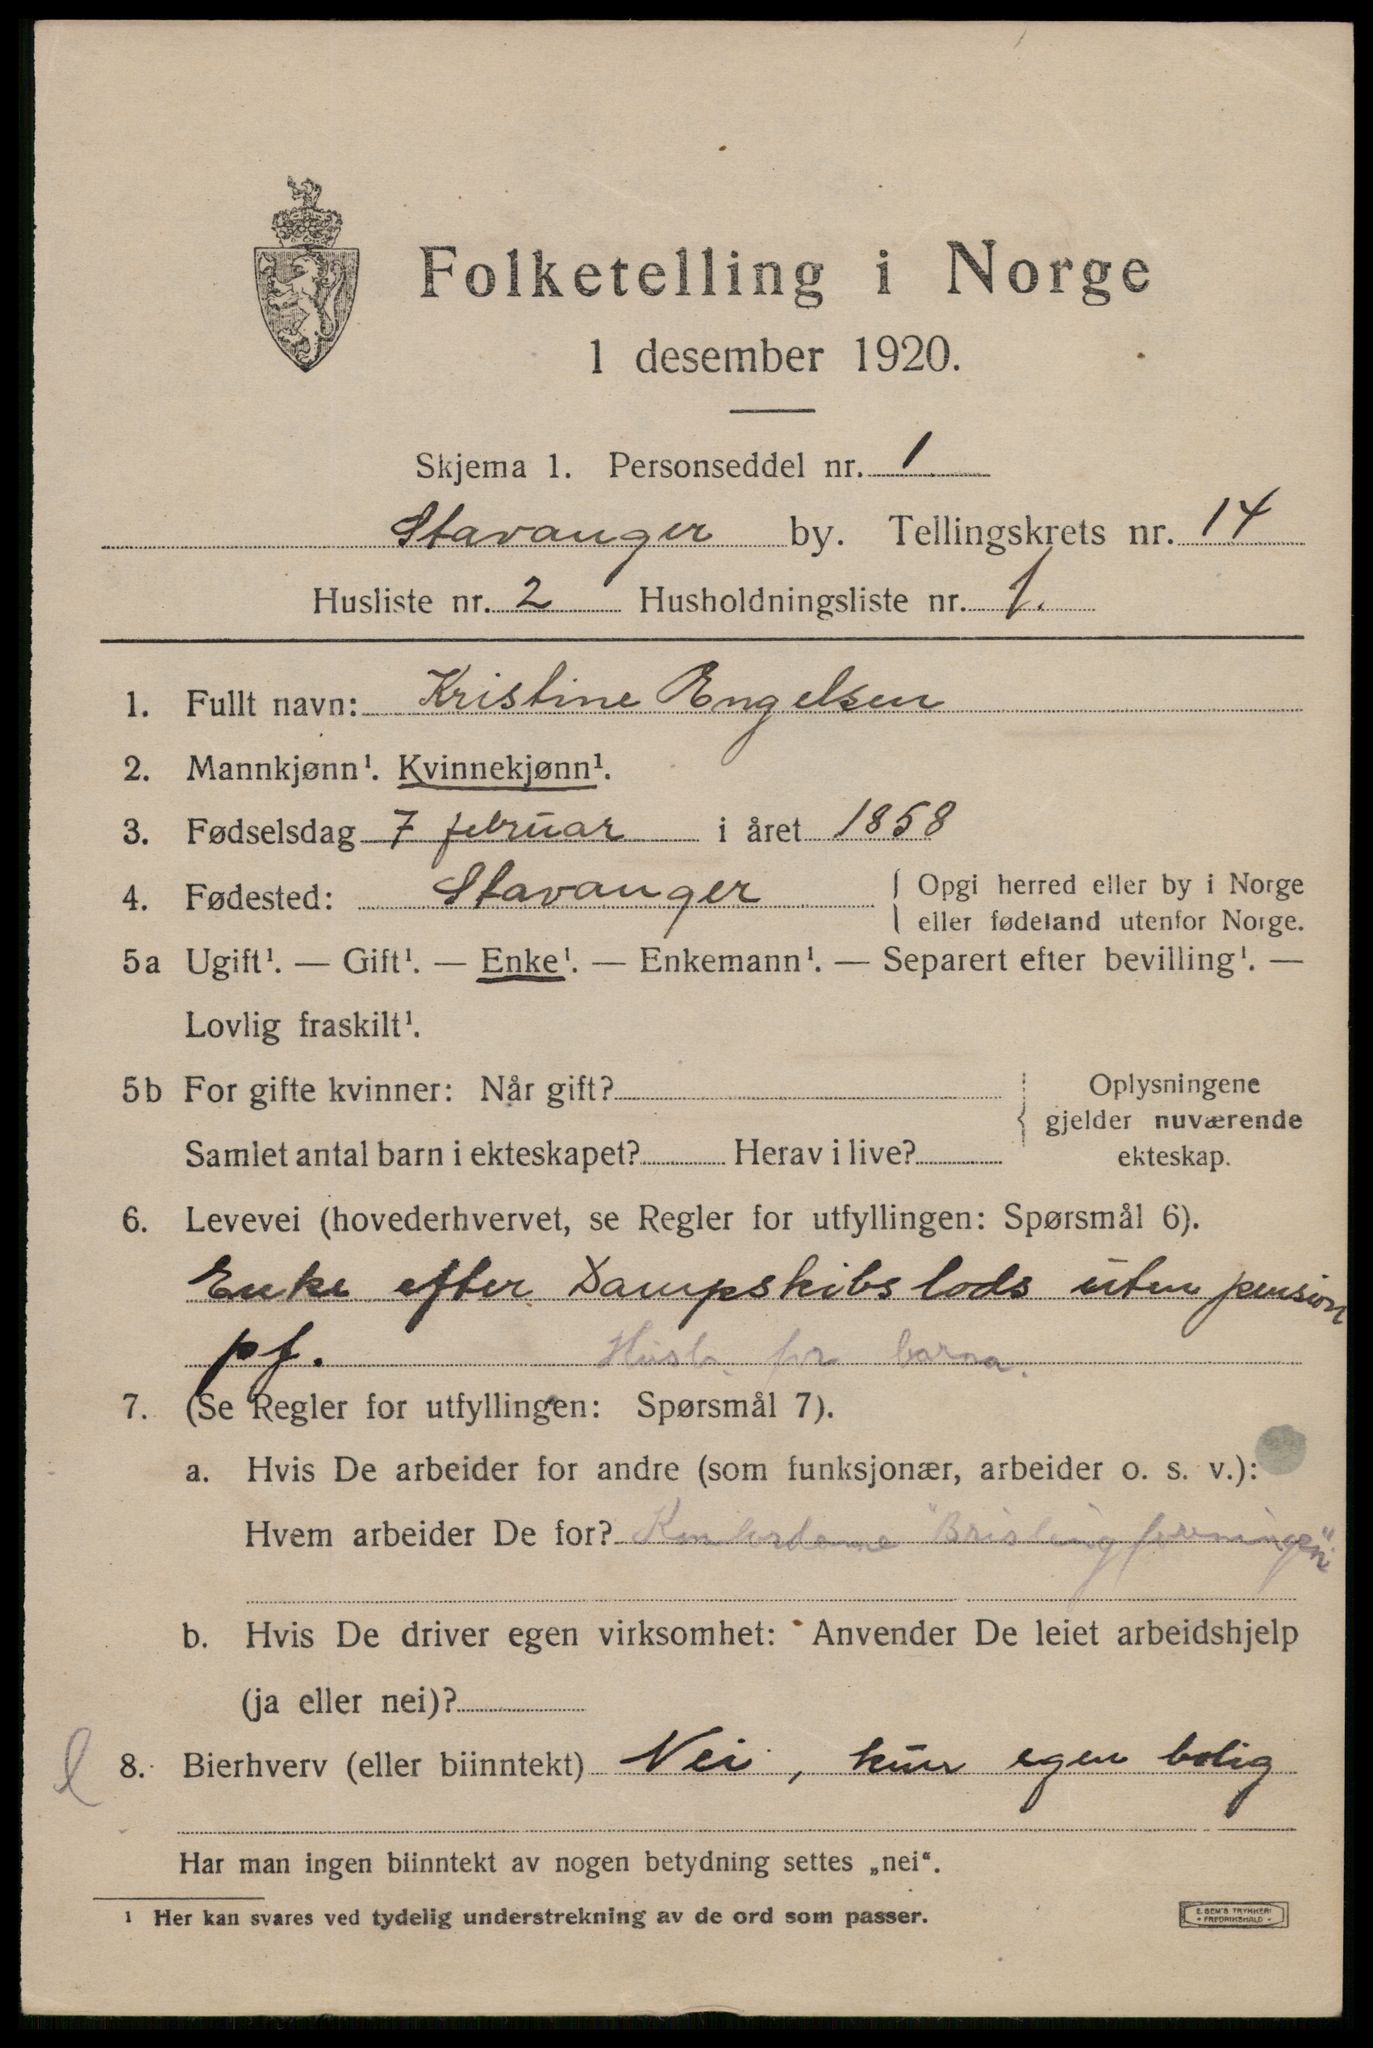 Folketelling i Norge
1 desember 1920.
Skjema 1. Personseddel nr. 1
Stavanger by. Tellingskrets nr. 14
Husliste nr. 2 Husholdningsliste nr. 1.
1. Fullt navn: Kristine Engelsen
2. Mannkjønn¹. Kvinnekjønn¹.
3. Fødselsdag 7 februar i året 1858
4. Fødested: Stavanger { Opgi herred eller by i Norge
eller fødeland utenfor Norge.
5a Ugift¹. — Gift¹. — Enke¹. — Enkemann¹. — Separert efter bevilling¹. —
Lovlig fraskilt¹.
5b For gifte kvinner: Når gift?
Samlet antal barn i ekteskapet? Herav i live?
Oplysningene
gjelder nuværende
ekteskap.
6. Levevei (hovederhvervet, se Regler for utfyllingen: Spørsmål 6).
Enke efter Dampskibslods uten pension
pf. Husb. for barna.
7. (Se Regler for utfyllingen: Spørsmål 7).
a. Hvis De arbeider for andre (som funksjonær, arbeider o. s. v.):
Hvem arbeider De for? Kontordame "Brislingforeningen".
b. Hvis De driver egen virksomhet: Anvender De leiet arbeidshjelp
(ja eller nei)?
8. Bierhverv (eller biinntekt) Nei, kun egen bolig
Har man ingen biinntekt av nogen betydning settes „nei“.
¹ Her kan svares ved tydelig understrekning av de ord som passer.
E. SEM'S TRYKKERI
FREDRIKSHALD